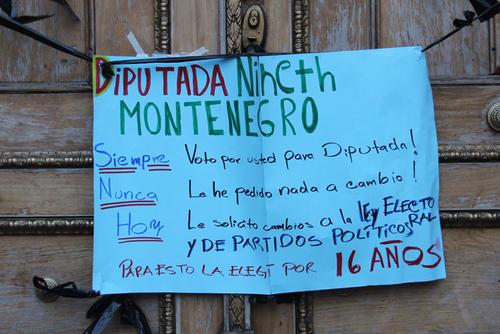 DIPUTADA NiNeth
MONTENEGRO
Siempre Voto por usted para Diputada!
Nunca Le he pedido nada a cambio!
Hoy Le solicito cambios a la ley ELECTORAL
Y DE PARTIDOS POLÍTICOS
PARA ESTO LA ELEGÍ POR 16 AÑOS